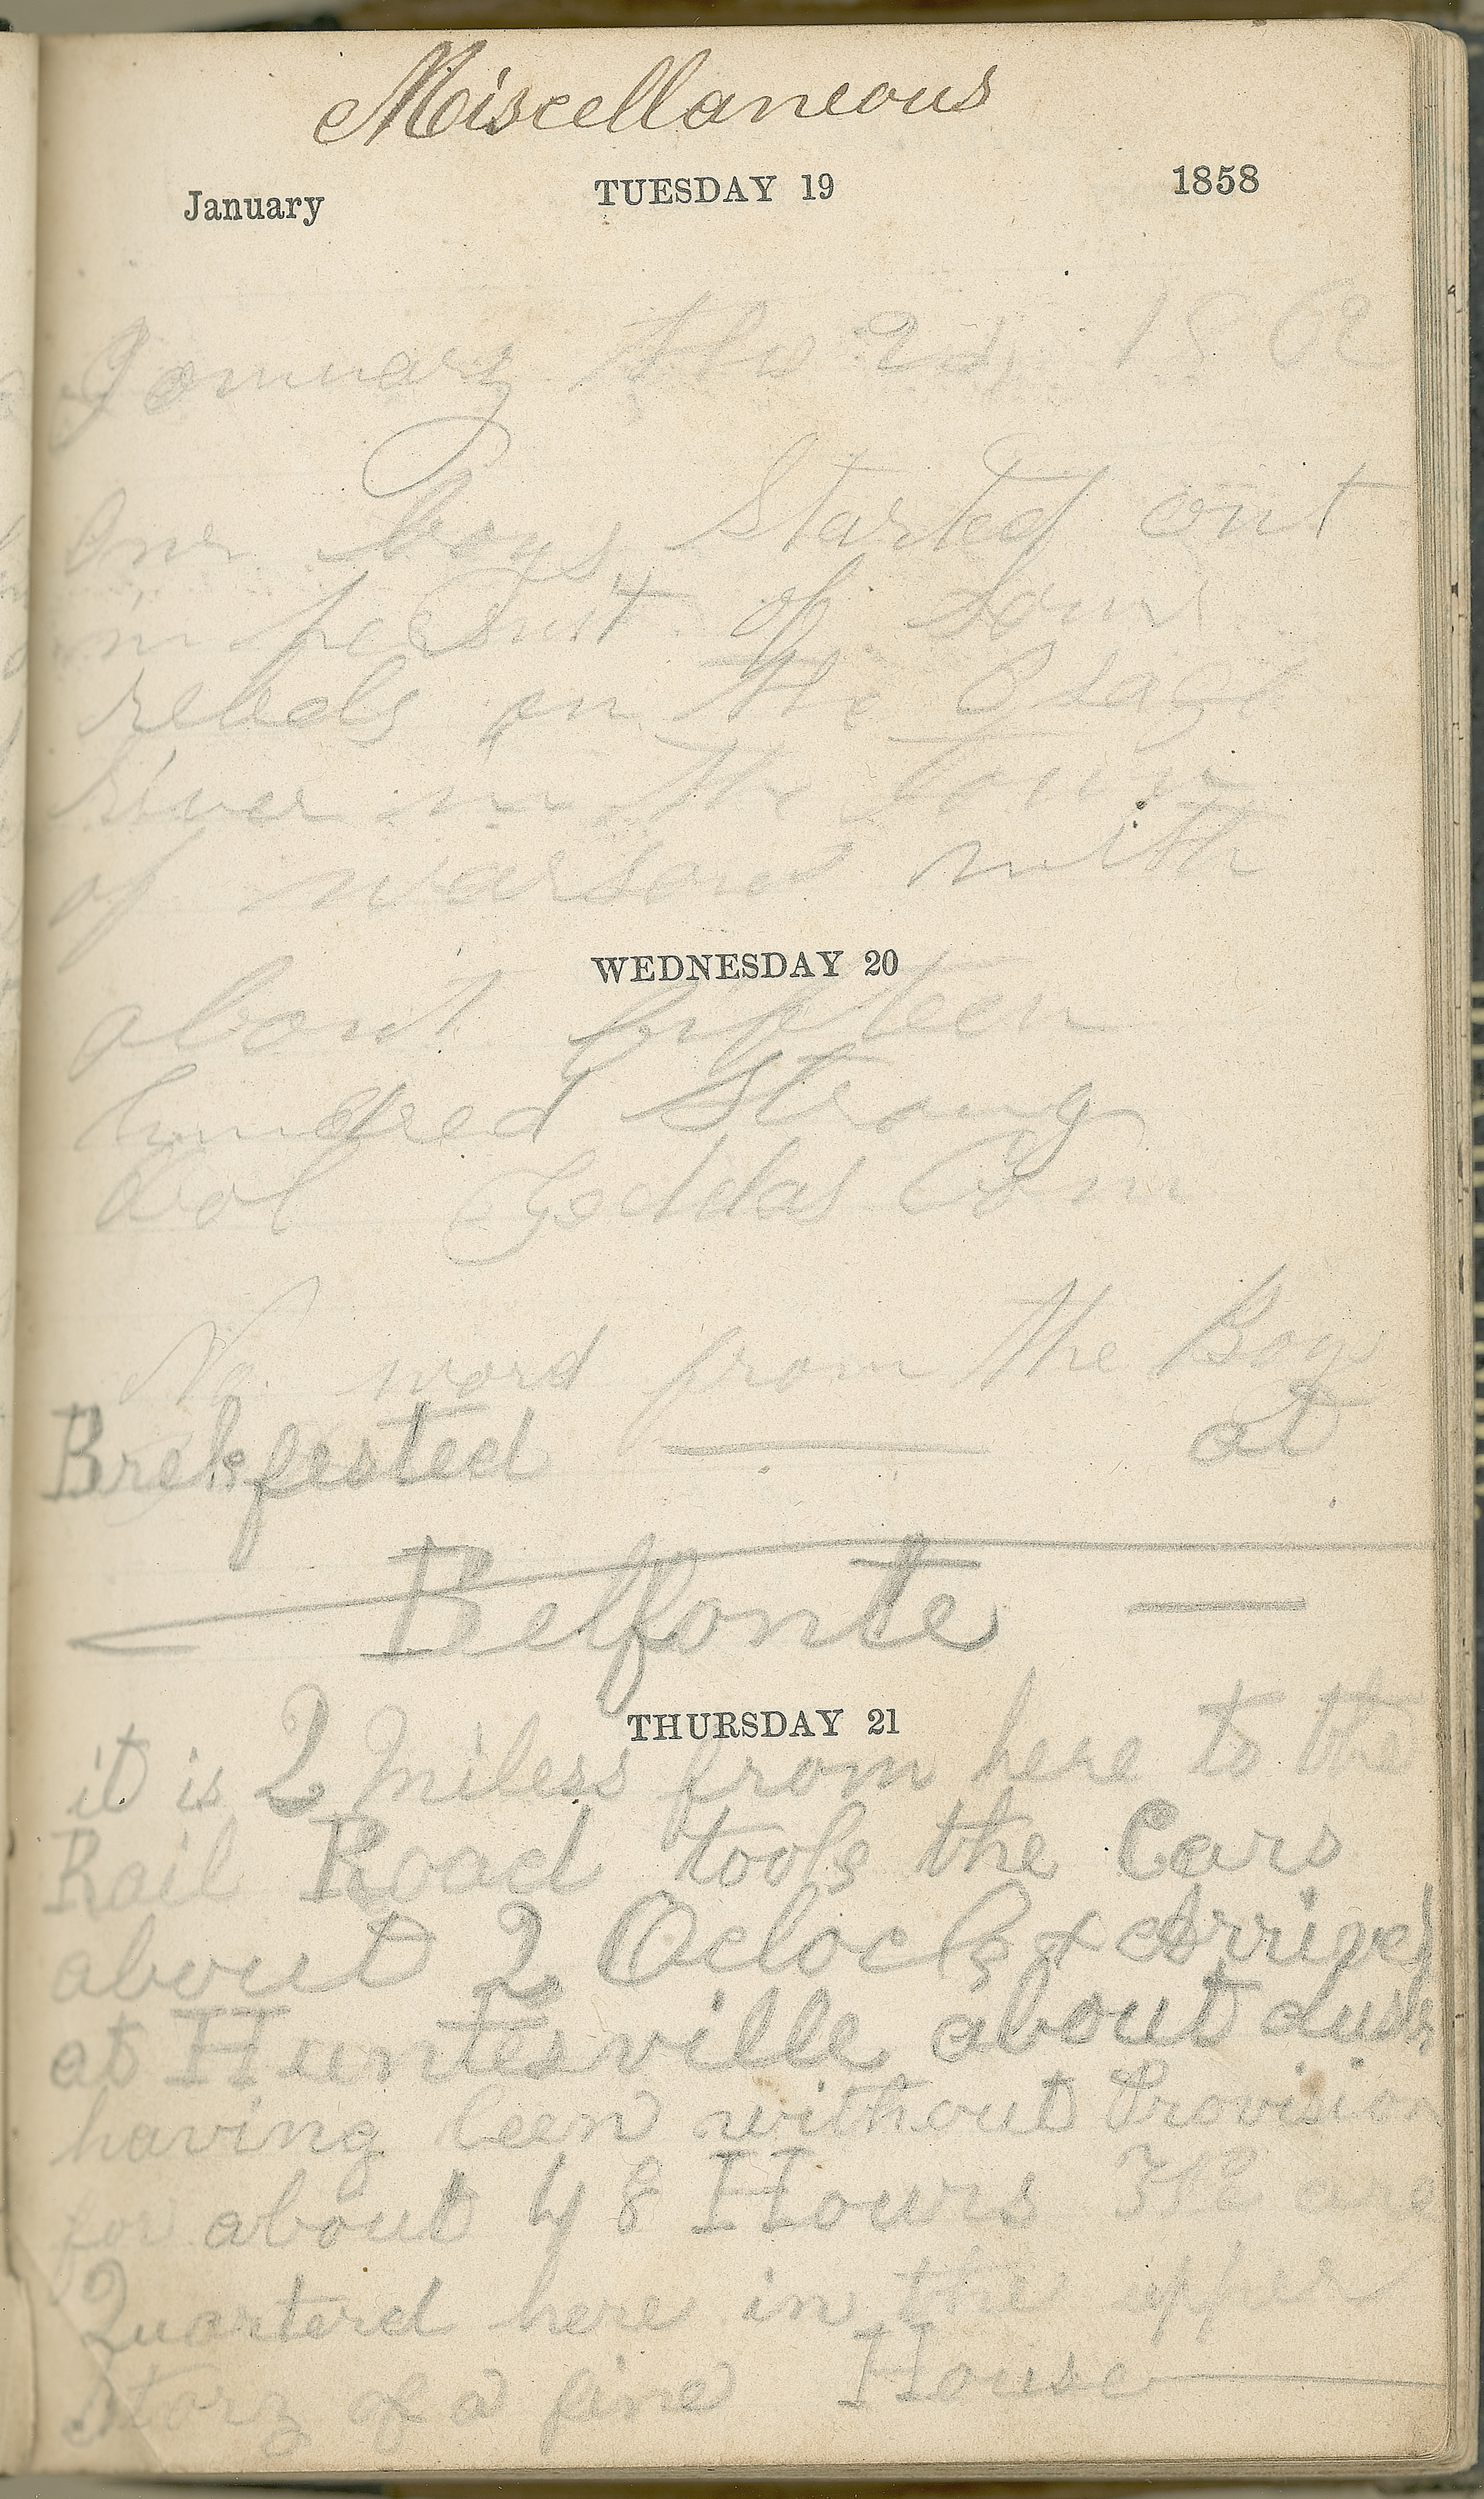 Miscellaneous
January TUESDAY 19 1858
January the 21, 1862
Our boys started out
in persuit of som
rebels on the Osage
River in the town
of warsaw with
WEDNESDAY 20
about fifteen
hundred strong
Col Geddas Com
No word from the Boys
Brekfested — at
Belfonte —
THURSDAY 21
it is 2 Miless from here to the
Rail Road took the Cars
about 2 Oclock & Arrived
at Huntesville about dusk
having been without Provision
for about 48 Hours We are
Quarterd here in the upper
Story of a fine House